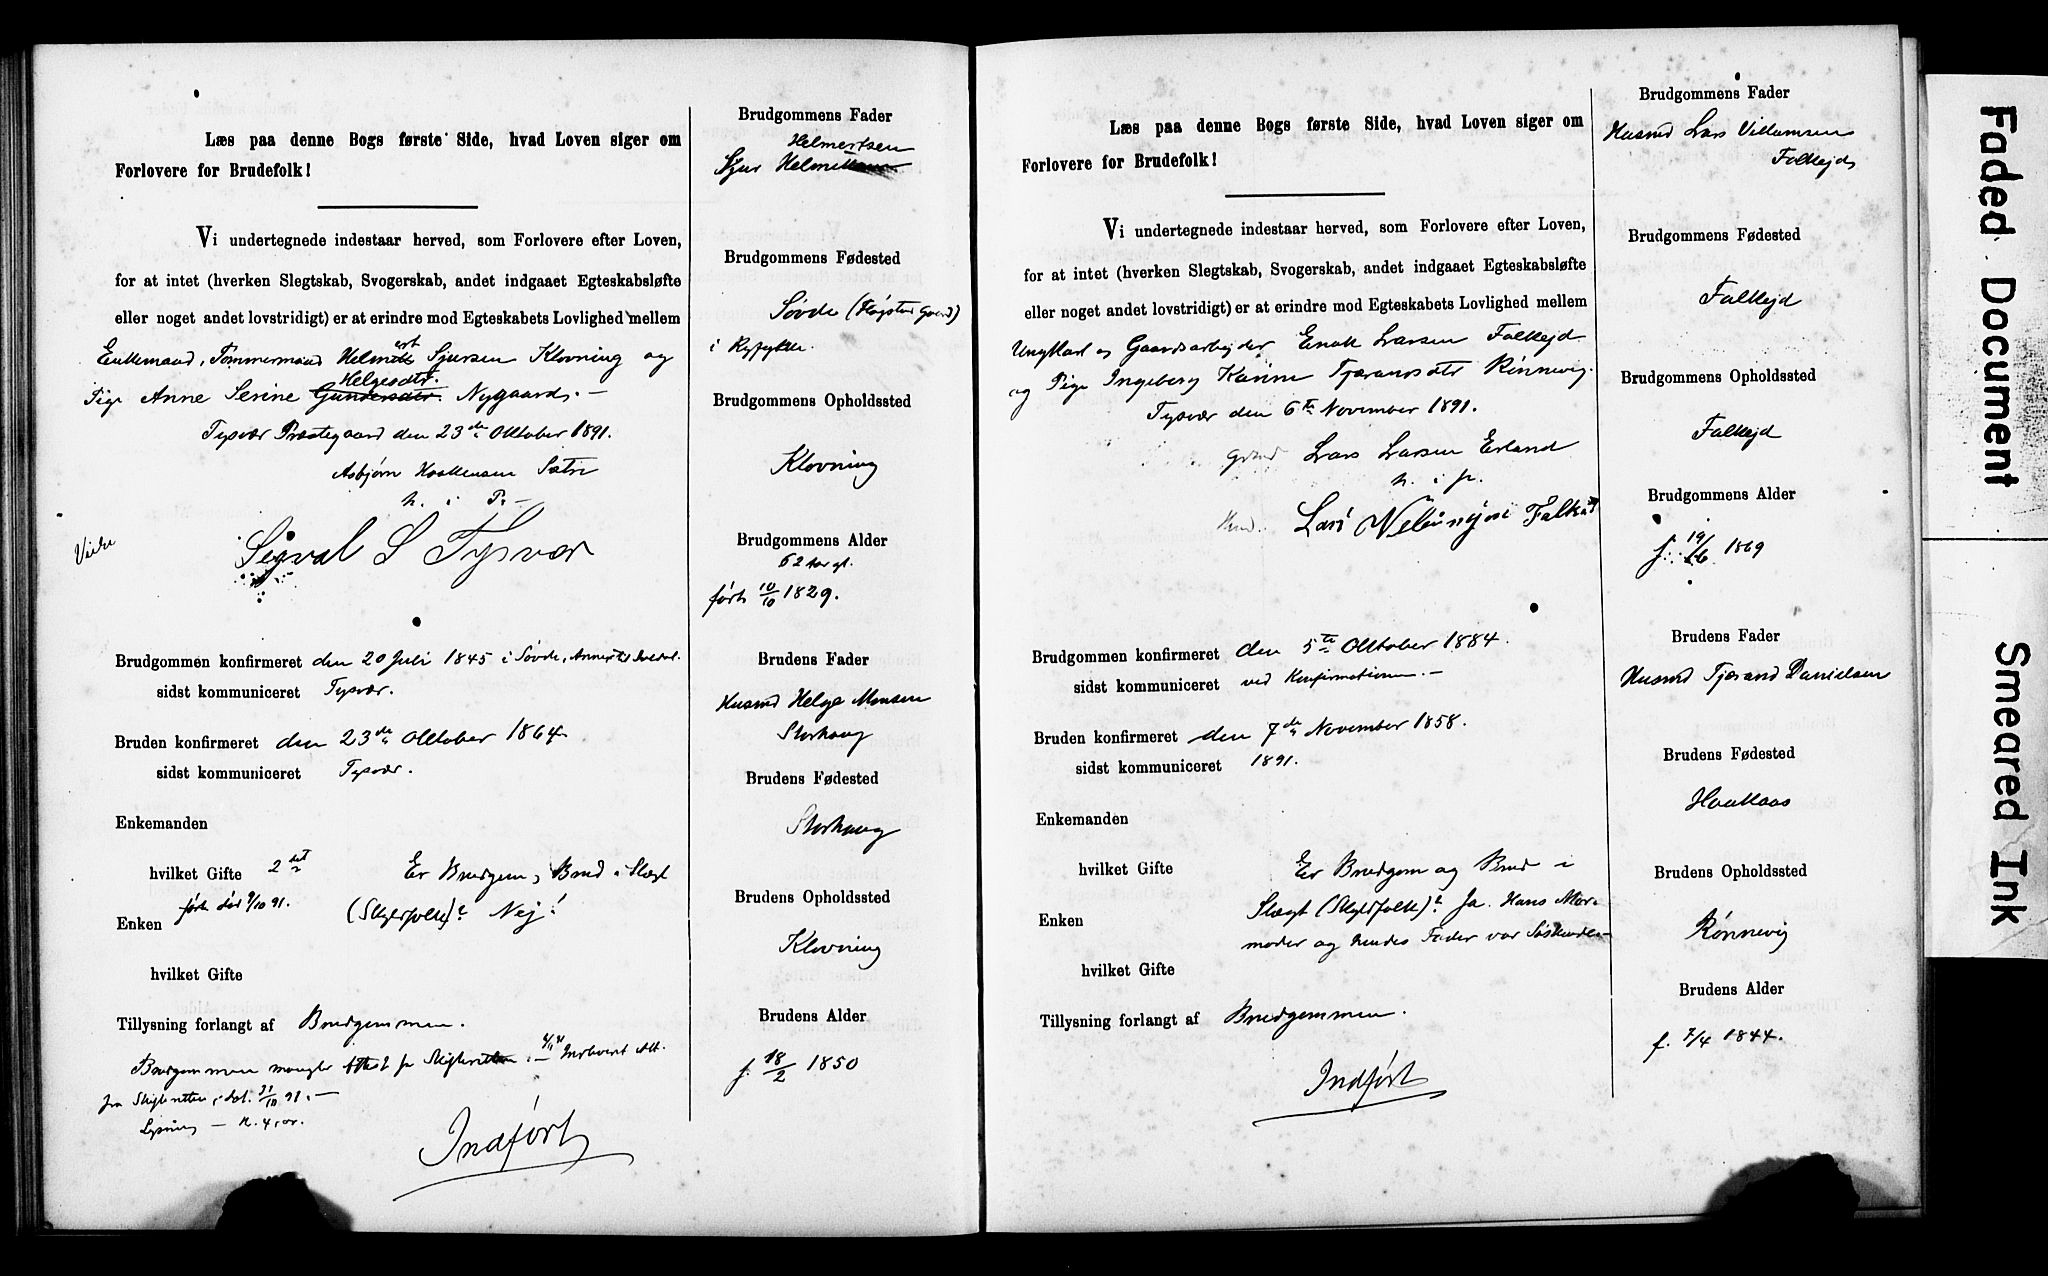 Læs paa denne Bogs første Side, hvad Loven siger om
Forlovere for Brudefolk!
Vi undertegnede indestaar herved, som Forlovere efter Loven,
for at intet (hverken Slegtskab, Svogerskab, andet indgaaet Egteskabsløfte
eller noget andet lovstridigt) er at erindre mod Egteskabets Lovlighed mellem
Enkemand, Tømmermand Helmert Sjursen Klovning og
Helgesdtr.
Pige Anne Serine Gundersdtr. Nygaard. —
Tysvær Præstegaard den 23de Oktober 1891.
Asbjørn Haakensen Sætre
h. i P. —
Sigval S Tysvær
Brudgommen konfirmeret den 20 Juli 1845 i Søvde,
sidst kommuniceret Tysvær.
Bruden konfirmeret den 23de Oktober 1864
sidst kommuniceret Tysvær.
Enkemanden
hvilket Gifte 2det
Er Brudgom og Brud i Slægt
Enken
(Skyldfolk)? Nej!
hvilket Gifte
Tillysning forlangt af Brudgommen.
Brudgommen mangler Attest fra Skifteretten.
fra Skifteretten, dat. 31/10 91. —
Indført
Brudgommens Fader
Helmertsen
Sjur
Brudgommens Fødested
Søvde
i Ryfylke.
Brudgommens Opholdssted
Klovning
Brudgommens Alder
62 aar gl.
født 10/10 1829.
Brudens Fader
Husmd Helge Monsen
Storhaug
Brudens Fødested
Storhaug
Brudens Opholdssted
Klovning
Brudens Alder
f. 18/2 1850
Læs paa denne Bogs første Side, hvad Loven siger om
Forlovere for Brudefolk!
Vi undertegnede indestaar herved, som Forlovere efter Loven,
for at intet (hverken Slegtskab, Svogerskab, andet indgaaet Egteskabsløfte
eller noget andet lovstridigt) er at erindre mod Egteskabets Lovlighed mellem
Ungkarl og Gaardsarbejder Enok Larsen Falkejd
og Pige Ingeborg Karine Tjærandsdtr Rønnevig.
Tysvær den 6te November 1891.
Lars Larsen Erland
h. i p.
Lars
Brudgommen konfirmeret den 5te Oktober 1884.
sidst kommuniceret ved Konfirmationen. —
Bruden konfirmeret den 7de November 1858.
sidst kommuniceret 1891.
Enkemanden
hvilket Gifte
Er Brudgom og Brud i
Enken
Slægt (Skyldfolk)? Ja. Hans Mor-
moder og hendes Fader var Søskende. —
hvilket Gifte
Tillysning forlangt af Brudgommen.
Indført
Brudgommens Fader
Husmd Lars Villumsen
Falkejd
Brudgommens Fødested
Falkejd
Brudgommens Opholdssted
Falkejd
Brudgommens Alder
f. 19/6 1869
Brudens Fader
Husmd Tjærand Danielsen
Brudens Fødested
Haakaas
Brudens Opholdssted
Rønnevig
Brudens Alder
f. 7/4 1844.
Faded Document
Smeared Ink